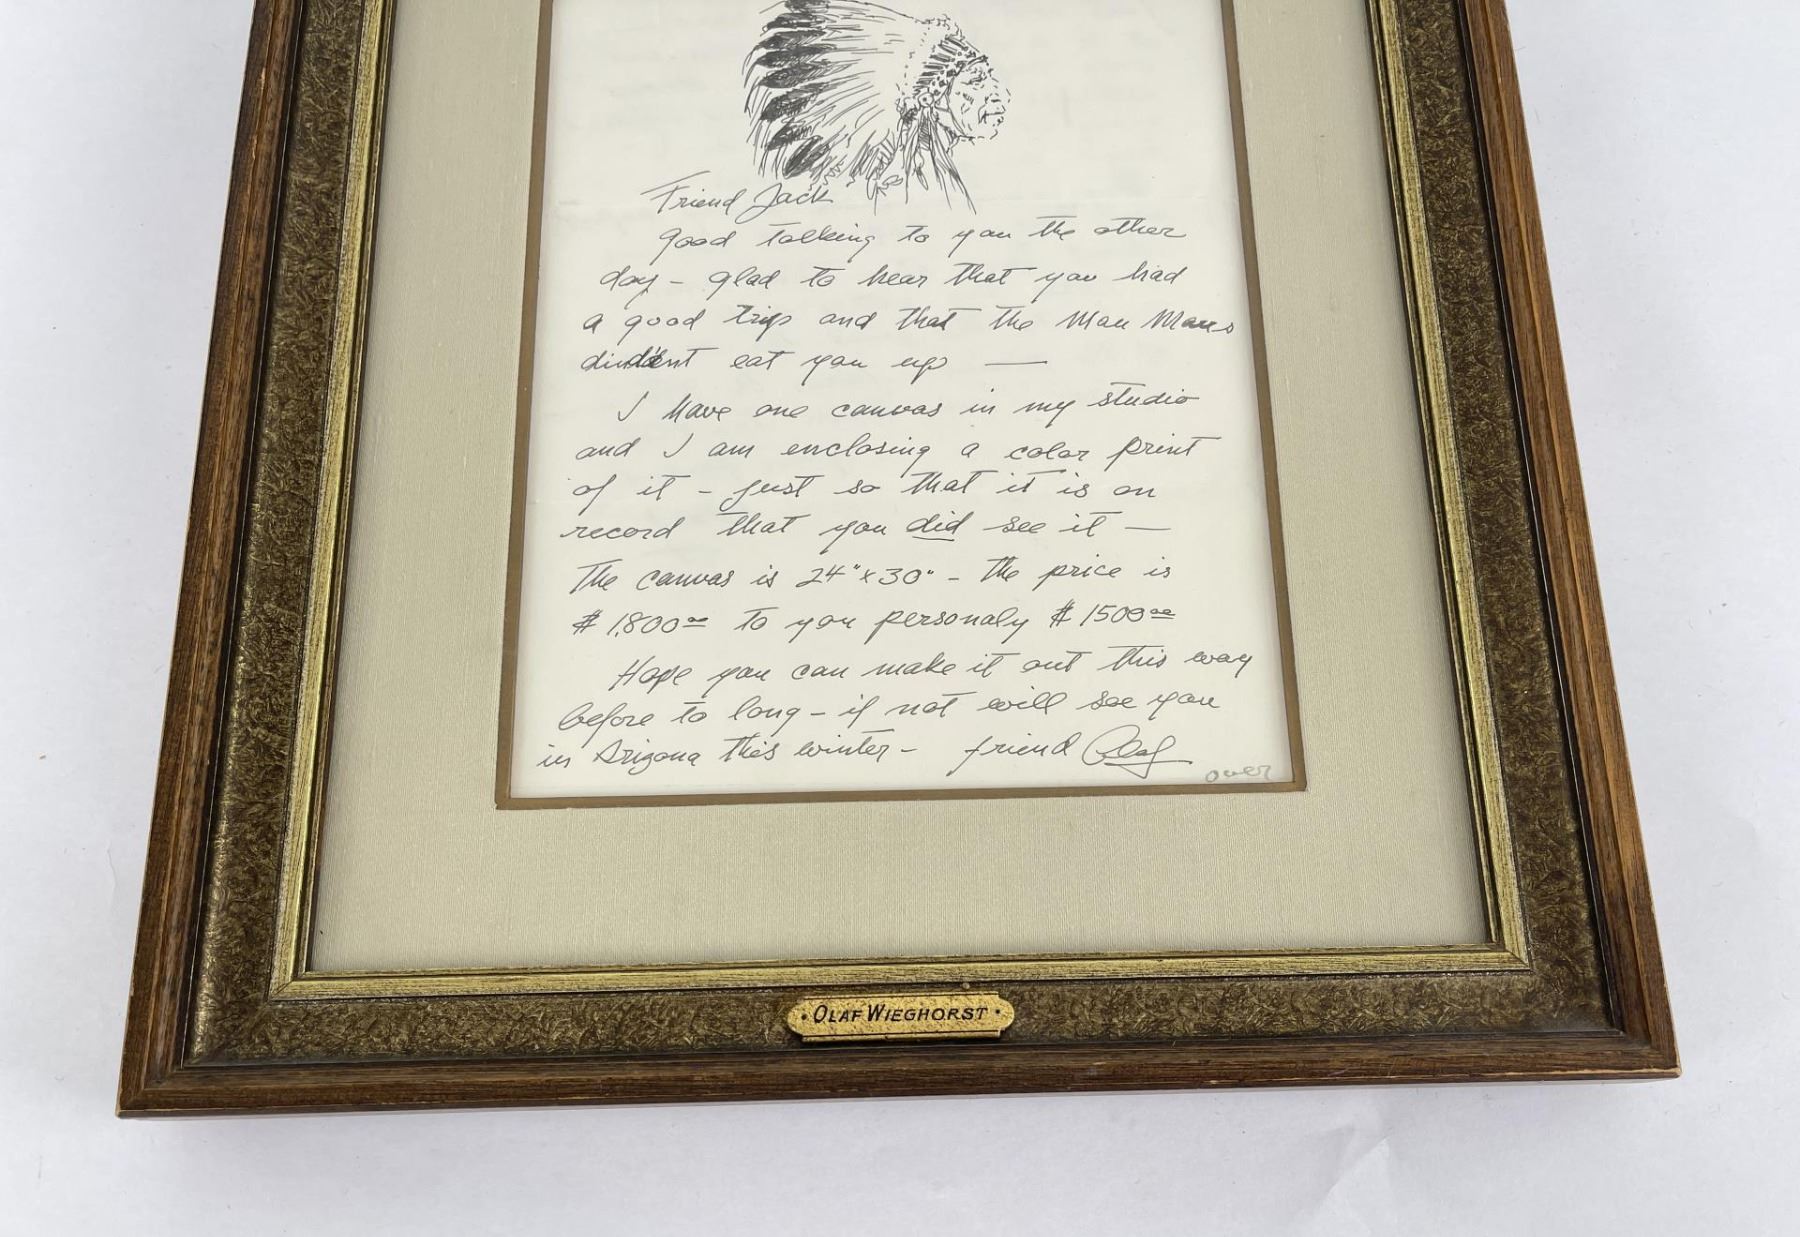 Friend Jack
good talking to you the other
day - glad to hear that you had
a good trip and that the Mau Maus
didn't eat you up —
I have one canvas in my studio
and I am enclosing a color print
of it - just so that it is on
record that you did see it —
The canvas is 24" x 30" - the price is
$ 1,800.00 to you personaly $ 1500.00
Hope you can make it out this way
before to long - if not will see you
in Arizona this winter - friend Olaf
over
• OLAF WIEGHORST •